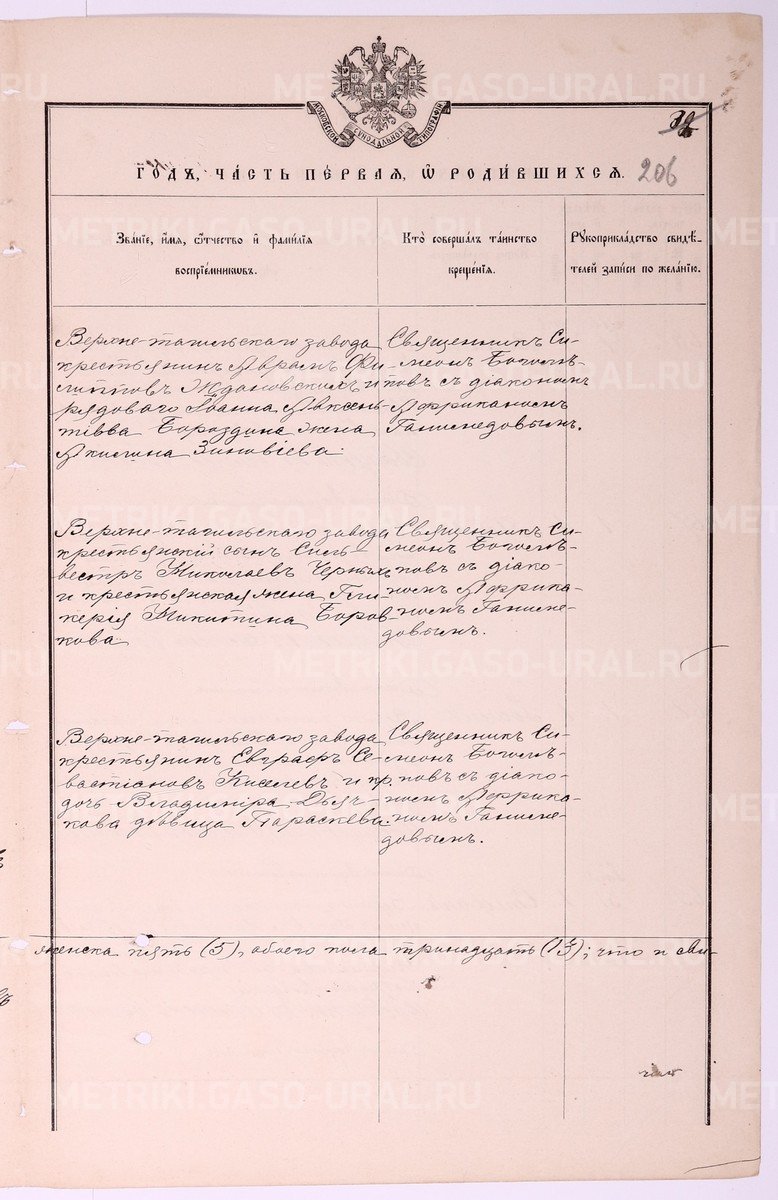 МОСКОВСКОЙ СѴНОДАЛЬНОЙ ТИПОГРАФІИ
206
ГОДЪ, ЧАСТЬ ПЕРВАЯ, Ѡ РОДИВШИХСЯ.
Званіе, имя, ѻтчество и фамилія
воспріемниковъ.
Кто совершалъ таинство
крещенія.
Рукоприкладство свидѣ-
телей записи по желанію.
Верхне-тагильскаго завода
крестьянинъ Аврамъ Фи-
липповъ Ждановскихъ и
рядоваго Іоанна Авксен-
тіева Бороздина жена
Акилина Зиновіева.
Священникъ Си-
меонъ Богомъ-
повъ съ діакономъ
Африканомъ
Ганимедовымъ.
Верхне-тагильскаго завода
крестьянскій сынъ Силь-
вестръ Николаевъ Черныхъ
и крестьянская жена Гли-
керія Никитина Боров-
кова.
Священникъ Си-
меонъ Богомъ-
повъ съ діако-
номъ Африка-
номъ Ганиме-
довымъ.
Верхне-тагильскаго завода
крестьянинъ Евграфъ Се-
вастіановъ Киселевъ и кр.
дочь Владиміра Дьяч-
кова дѣвица Параскева.
Священникъ Си-
меонъ Богомъ-
повъ съ діако-
номъ Африка-
номъ Ганиме-
довымъ.
женска пять (5), обоего пола тринадцать (13); что и сви-
METRIKI.GASO-URAL.RU